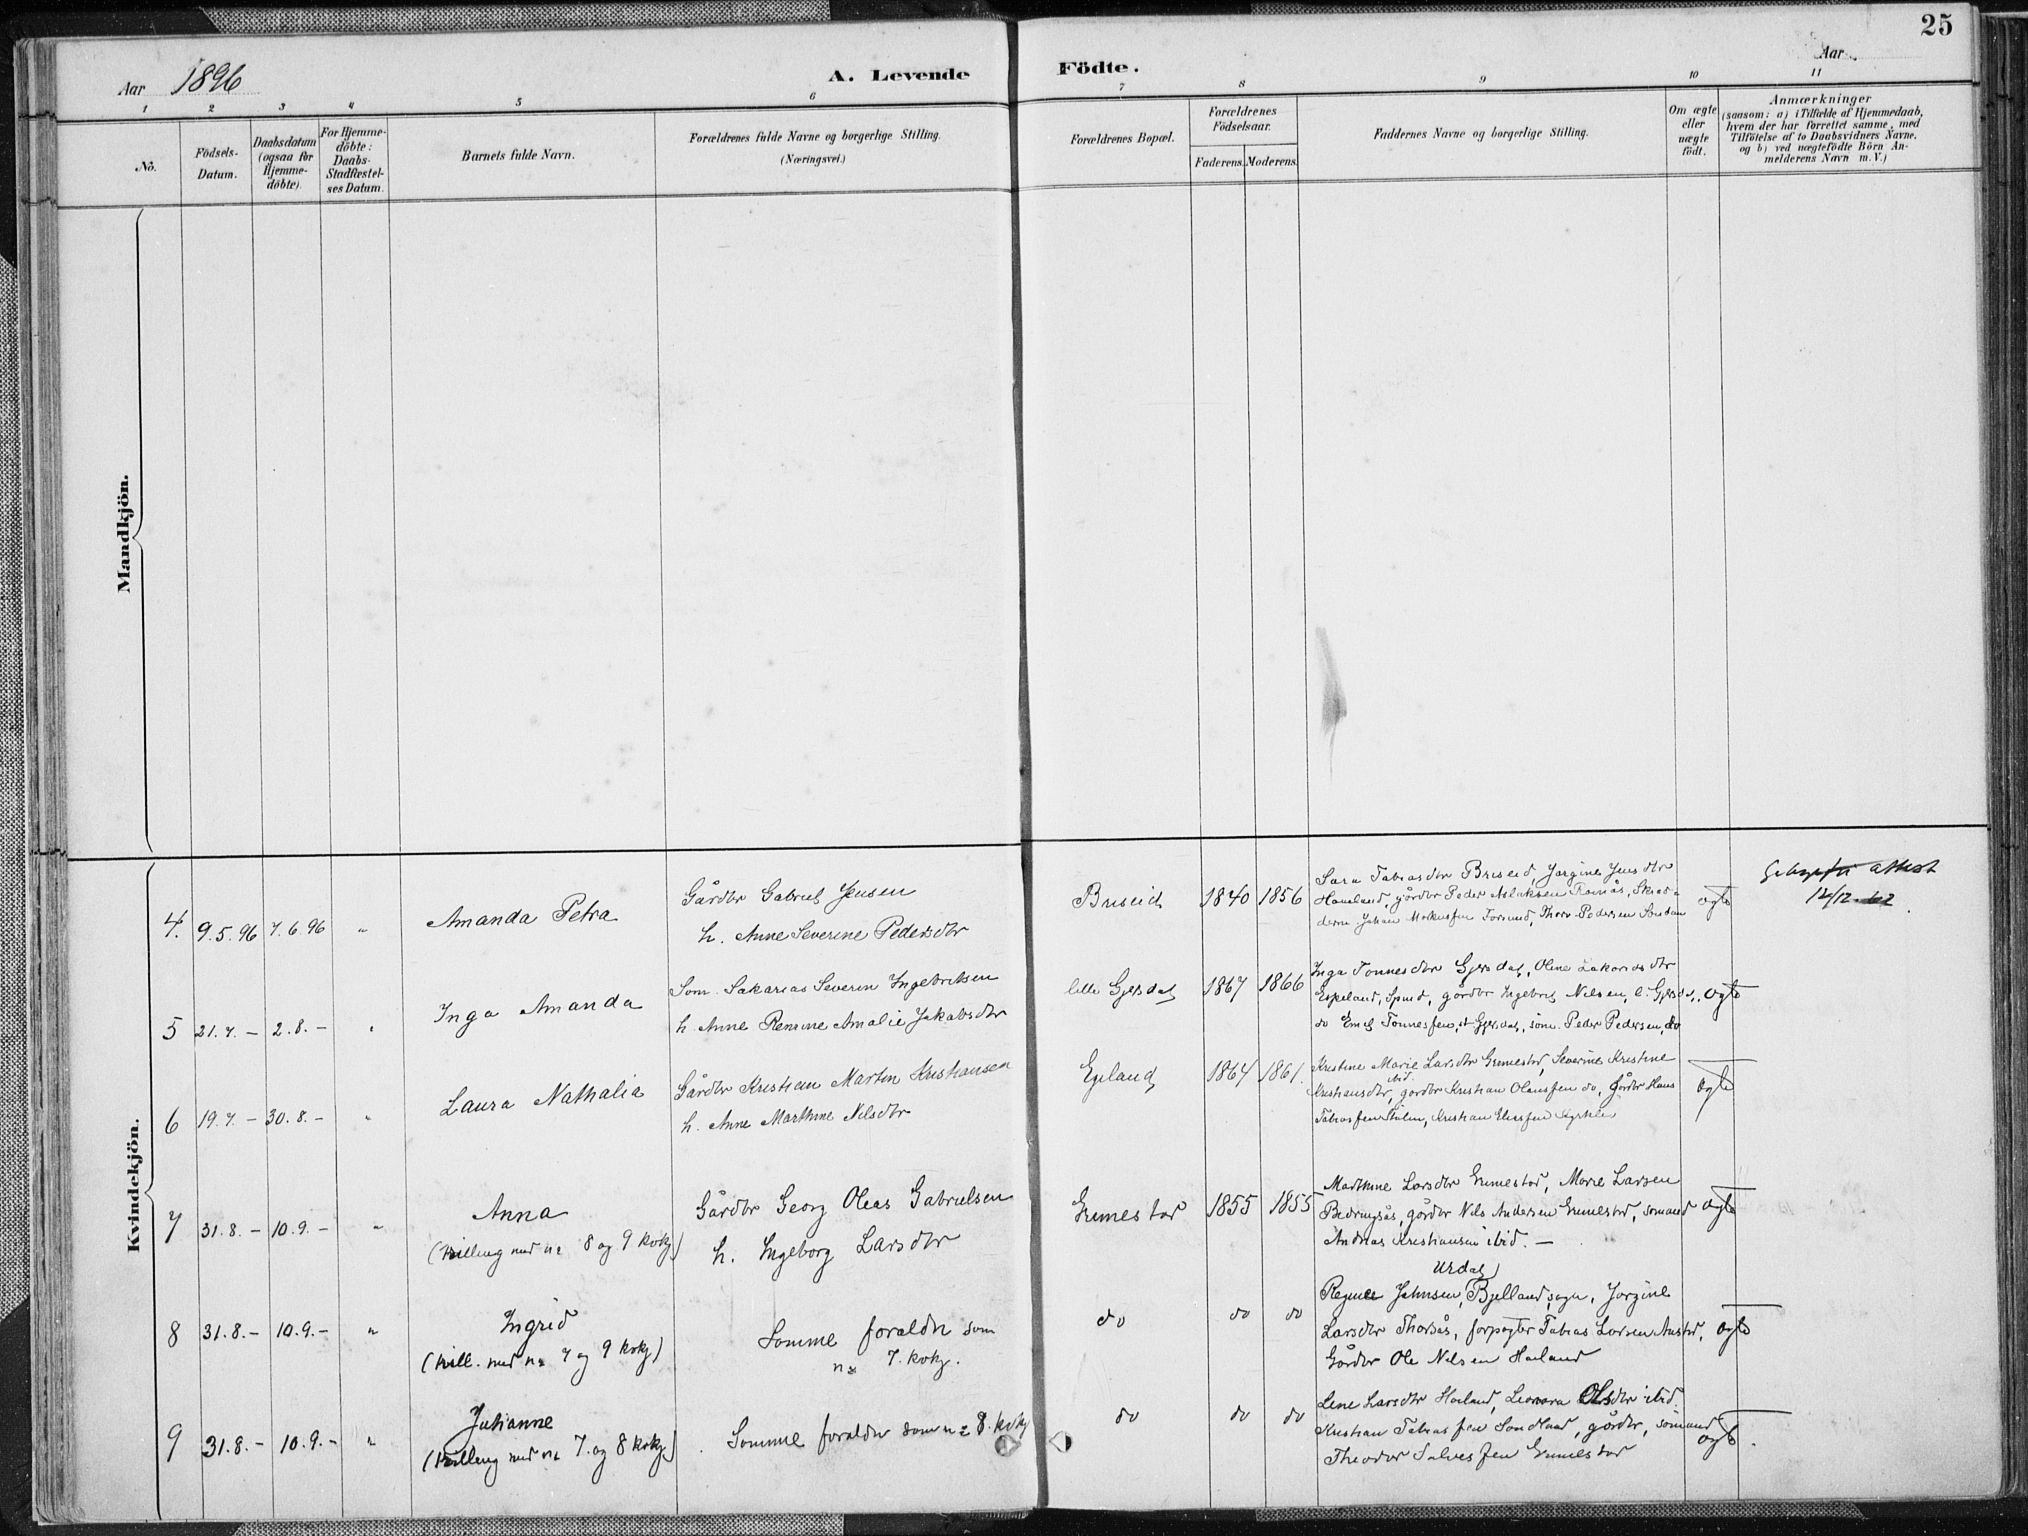 25
Aar 1896
A. Levende Födte.
Aar
1 2 3 4 5 6 7 8 9 10 11
No.
Födsels-
Datum.
Daabsdatum
(ogsaa for
Hjemme-
döbte).
For Hjemme-
döbte:
Daabs-
Stadfæstel-
ses Datum.
Barnets fulde Navn.
Forældrenes fulde Navne og borgerlige Stilling.
(Næringsvei.)
Forældrenes Bopæl.
Forældrenes
Födselsaar.
Faderens. Moderens.
Faddernes Navne og borgerlige Stilling.
Om ægte
eller
uægte
födt.
Anmærkninger
(saasom: a) i Tilfælde af Hjemmedaab,
hvem der har forrettet samme, med
Tilföielse af to Daabsvidners Navne,
og b) ved uægtefödte Börn An-
melderens Navn m. V.)
Mandkjön.
Kvindekjön.
4. 9.5.96 7.6.96 "
Amanda Petra
Gårdbr Gabriel Jensen
h. Anne Severine Pedersdtr
Briseid 1840 1856
Sara Tobiasdtr Briseid, Jørgine Jensdtr
Haueland, gårdbr Peder Aslaksen
Johan, Thore Pedersen
ægte
attest
12/12-62
5 21.7.- 2.8.- "
Inga Amanda
Søm. Sakarias Severin Ingebretsen
h. Anne Amalie Jakobsdtr
lille Gjersdal 1867 1866
Inga Tønnesdtr Gjersdal, Oline Zakariasdtr
Espeland, Spind, gårdbr Ingebret Nilsen, l. Gjersdal,
do Emil Tønnessen, st. Gjersdal, søm. Peder Pedersen, do
ægte
6 19.7.- 30.8.- "
Laura Nathalia
Gårdbr Kristian Martin Kristiansen
h. Anne Marthine Nilsdtr
Egeland 1864 1861.
Kristine Marie Larsdtr Grimestad, Severine Kristine
Kristiansdtr, ibid. gårdbr Kristian Olaussen do, gårdbr Hans
Tobiassen, Kristian Eliassen
ægte
7 31.8.- 10.9.- "
Anna
(trilling med no 8 og 9 kvkj)
Gårdbr Georg Oleas Gabrielsen
h. Ingeborg Larsdtr
Grimestad 1855 1855
Marthine Larsdtr Grimestad, Marie Larsen
gårdbr Nils Andersen Grimestad, sømand
Andreas Kristiansen ibid. —
ægte
8 31.8.- 10.9.- "
Ingrid
(trill. med no 7 og 9 kvkj)
Samme forældre som
no 7. kvkj.
do do do
Urdal
Johnsen, Bjelland sogn, Jørgine
Larsdtr Thorsås, forpagter Tobias Larsen
Gårdbr Ole Nilsen Høiland
ægte
9 31.8.- 10.9.- "
Julianne
(trilling med no 7. og 8 kvkj)
Samme forældre som no 8. kvkj
do do do
Lene Larsdtr Høiland, Leonora Olsdtr ibid.
Kristian Tobiassen, gårdbr, sømand
Theodor Salvesen Grimestad
ægte